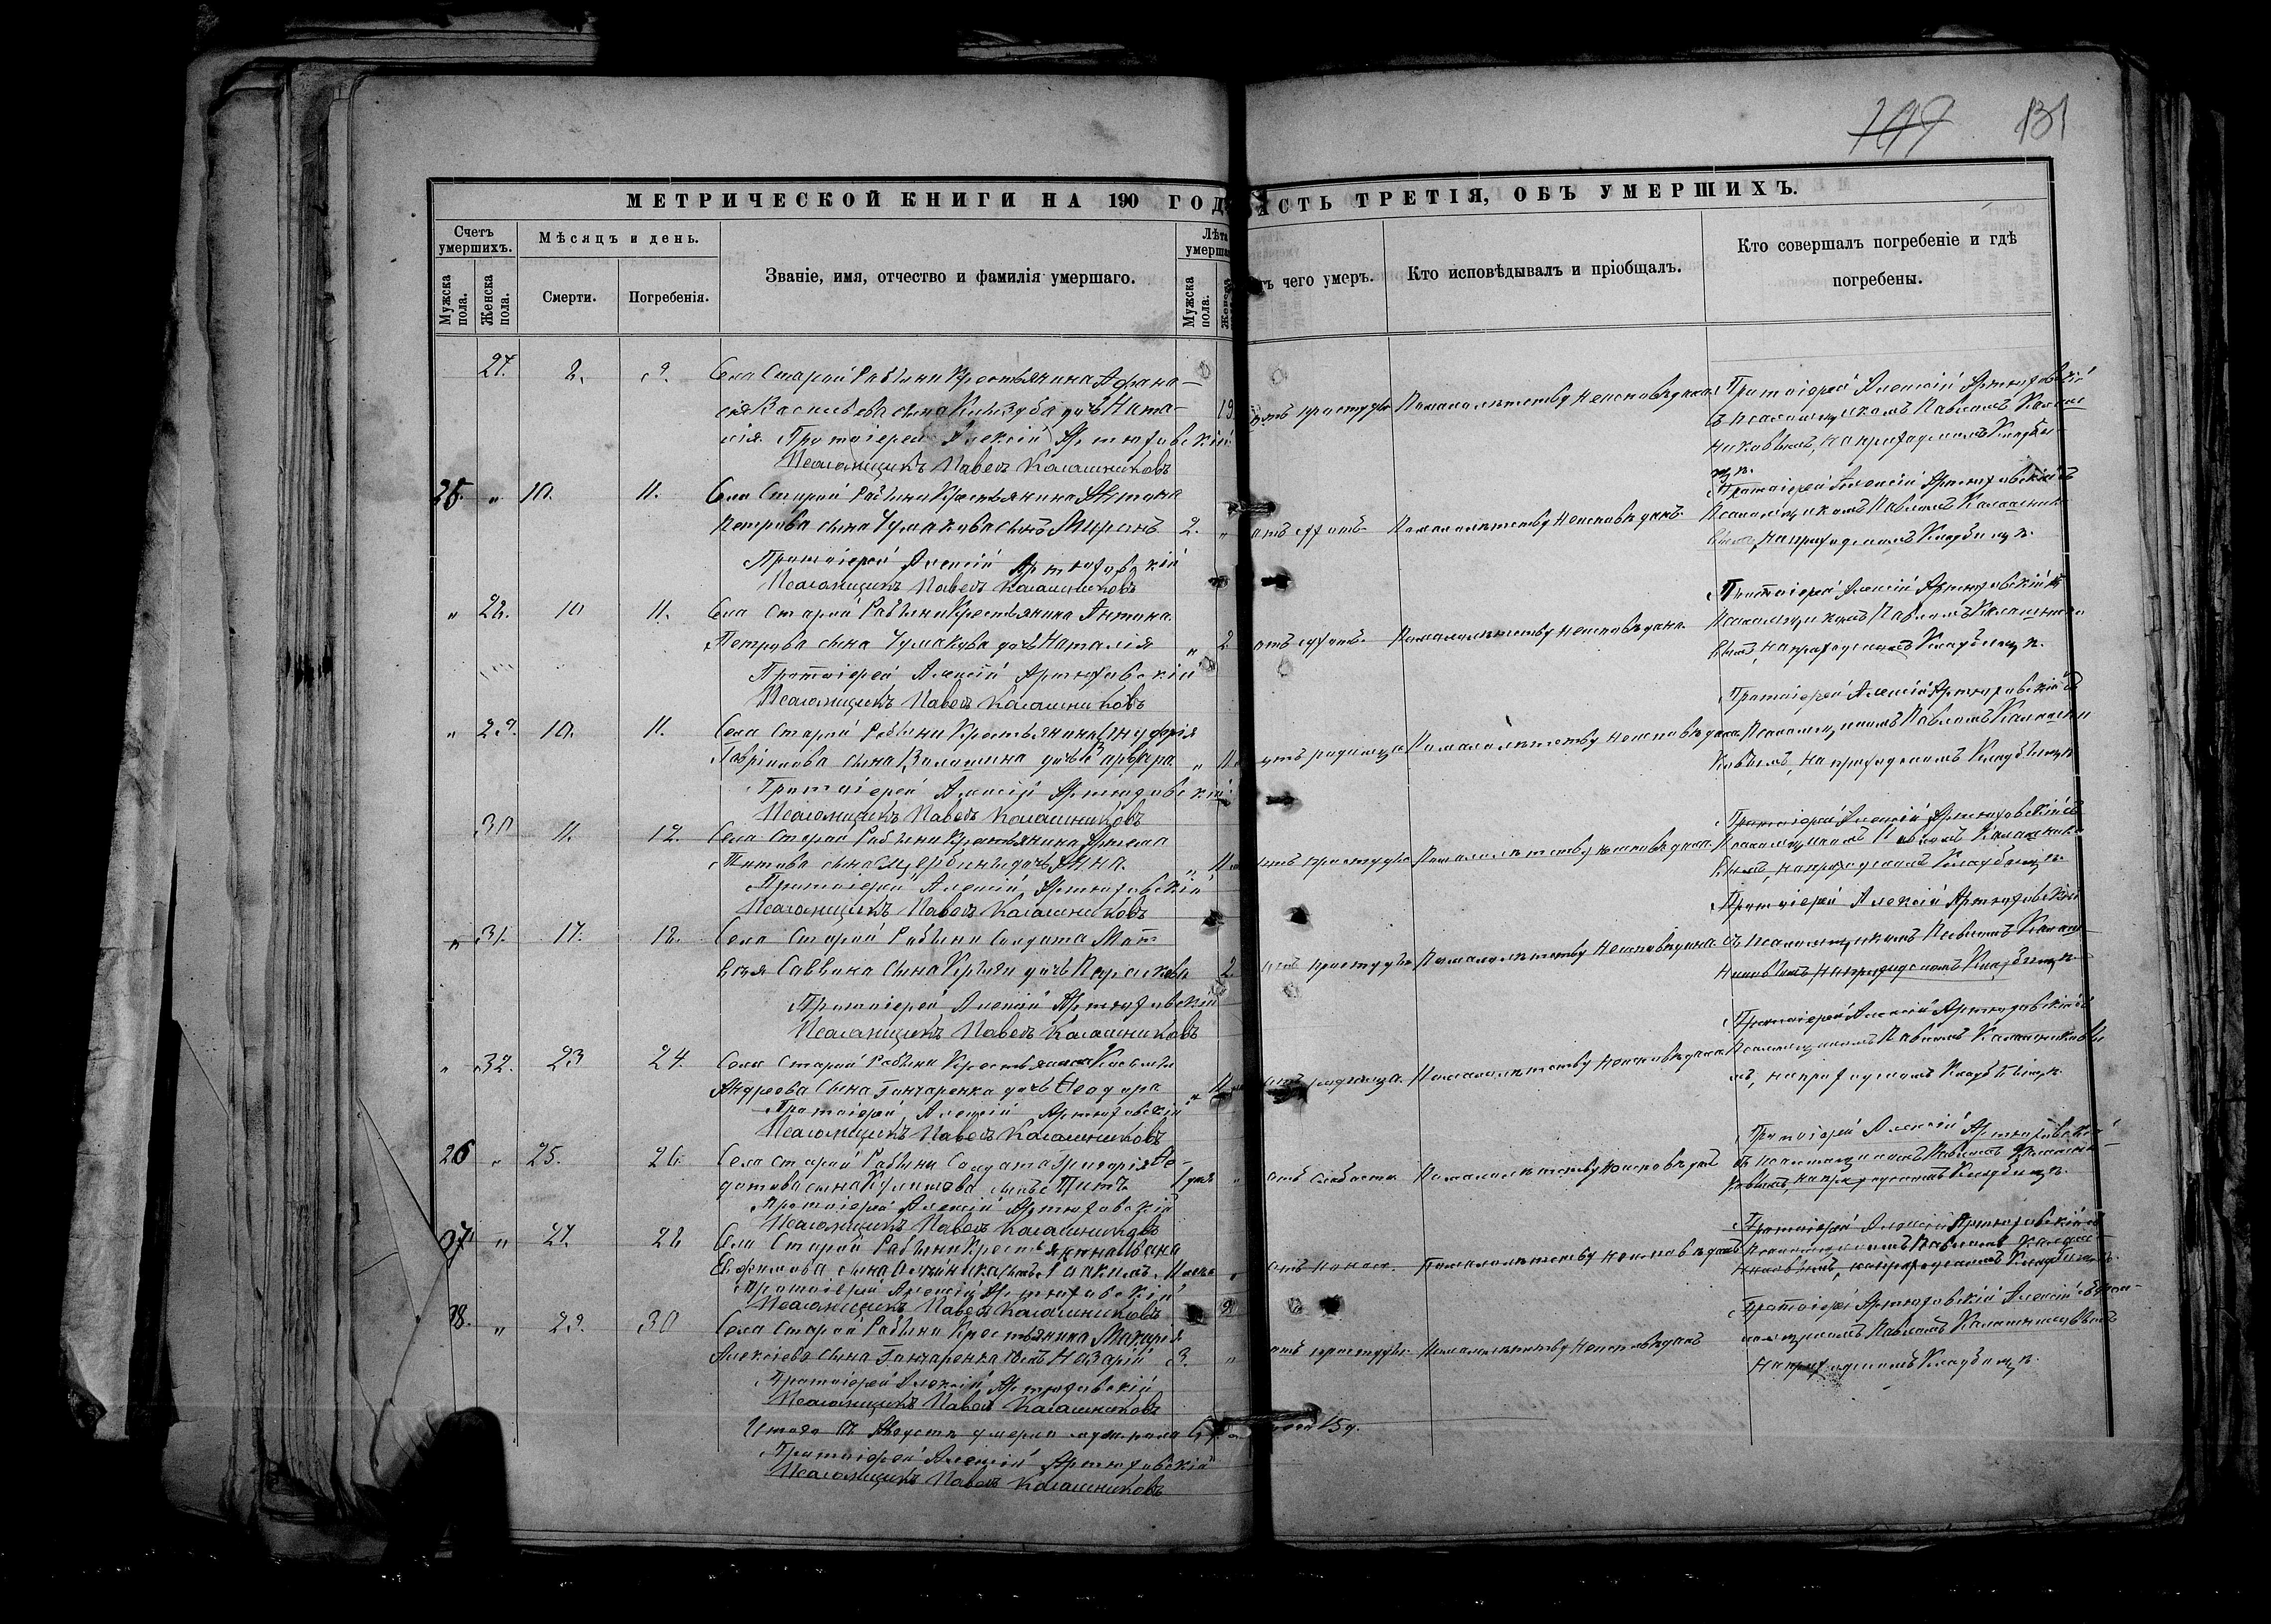 149 131
МЕТРИЧЕСКОЙ КНИГИ НА 190 ГОД АСТЬ ТРЕТІЯ, ОБЪ УМЕРШИХЪ.
Счетъ умершихъ.
Мѣсяцъ и день.
Званіе, имя, отчество и фамилія умершаго.
Лѣта умерша
ъ чего умеръ.
Кто исповѣдывалъ и пріобщалъ.
Кто совершалъ погребеніе и гдѣ
погребены.
Мужска пола.
Женска пола.
Смерти.
Погребенія.
Мужска пола.
27. 2. 9. Села Старой Рабыни Крестьянина Афана-
сія Васильева сына дочь Ната-
лія. Протоіерей Алексій Артюховскій
Псаломщикъ Павелъ Калашниковъ
отъ простуды По малолѣтству неисповѣдана
Протоіерей Алексій Артюховскій
съ псаломщикомъ Павломъ Калаш
никовымъ, на приходскомъ кладби-
щѣ.
25. " 10. 11. Села Старой Рабыни Крестьянина Антона
Петрова сына Чумакова сынъ Миронъ 2. "
Протоіерей Алексій Артюховскій
Псаломщикъ Павелъ Калашниковъ
По малолѣтству неисповѣданъ.
Протоіерей Алексій Артюховскій съ
Псаломщикомъ Павломъ Калашнико
вымъ, на приходскомъ кладбищѣ.
" 28. 10 11. Села Старой Рабыни Крестьянина Антона
Петрова сына Чумакова дочь Наталія " 2
Протоіерей Алексій Артюховскій
Псаломщикъ Павелъ Калашниковъ
По малолѣтству неисповѣдана.
Протоіерей Алексій Артюховскій съ
Псаломщикомъ Павломъ Калашнико
вымъ, на приходскомъ кладбищѣ.
" 29. 10. 11. Села Старой Рабыни Крестьянина Онуфрія
сына дочь Варвара "
Протоіерей Алексій Артюховскій
Псаломщикъ Павелъ Калашниковъ
отъ родимца По малолѣтству неисповѣдана
Протоіерей Алексій Артюховскій съ
Псаломщикомъ Павломъ Калашни
ковымъ, на приходскомъ кладбищѣ
30 11. 12. Села Старой Рабыни Крестьянина Артема
Титова сына дочь Анна. "
Протоіерей Алексій Артюховскій
Псаломщикъ Павелъ Калашниковъ
отъ простуды По малолѣтству неисповѣдана
Протоіерей Алексій Артюховскій съ
Псаломщикомъ Павломъ Калашнико
вымъ, на приходскомъ кладбищѣ.
" 31. 17. 18. Села Старой Рабыни Солдата Мат-
вѣя Саввина сына дочь Параскева 2
Протоіерей Алексій Артюховскій
Псаломщикъ Павелъ Калашниковъ
отъ простуды По малолѣтству неисповѣдана
Протоіерей Алексій Артюховскій
съ псаломщикомъ Павломъ Калаш
никовымъ на приходскомъ кладбищѣ.
" 32. 23 24. Села Старой Рабыни Крестьянина
Андреева сына Гончаренка дочь Ѳеодора "
Протоіерей Алексій Артюховскій
Псаломщикъ Павелъ Калашниковъ
отъ родимца. По малолѣтству неисповѣдана
Протоіерей Алексій Артюховскій съ
Псаломщикомъ Павломъ Калашниковы
мъ, на приходскомъ кладбищѣ.
26 " 25. 26. Села Старой Рабыни Солдата Григорія Ѳе-
дотова сына сынъ Титъ "
Протоіерей Алексій Артюховскій
Псаломщикъ Павелъ Калашниковъ
отъ слабости По малолѣтству неисповѣданъ
Протоіерей Алексій Артюховскій
съ псаломщикомъ Павломъ Калашни
ковымъ, на приходскомъ кладбищѣ.
27. " 27. 28 Села Старой Рабыни Крестьянина Ивана
Ефимова сына сынъ Іоакимъ. "
Протоіерей Алексій Артюховскій
Псаломщикъ Павелъ Калашниковъ
отъ понос. По малолѣтству неисповѣданъ
Протоіерей Алексій Артюховскій съ
Псаломщикомъ Павломъ Калаш
никовымъ, на приходскомъ кладбищѣ.
28. " 29. 30 Села Старой Рабыни Крестьянина
Алексіева сына Гончаренка сынъ Назарій 3. "
Протоіерей Алексій Артюховскій
Псаломщикъ Павелъ Калашниковъ
отъ простуды По малолѣтству неисповѣданъ
Протоіерей Артюховскій Алексій съ пса-
ломщикомъ Павломъ Калашниковымъ
на приходскомъ кладбищѣ.
Итого въ Августѣ умерло муж. пола
Протоіерей Алексій Артюховскій
Псаломщикъ Павелъ Калашниковъ